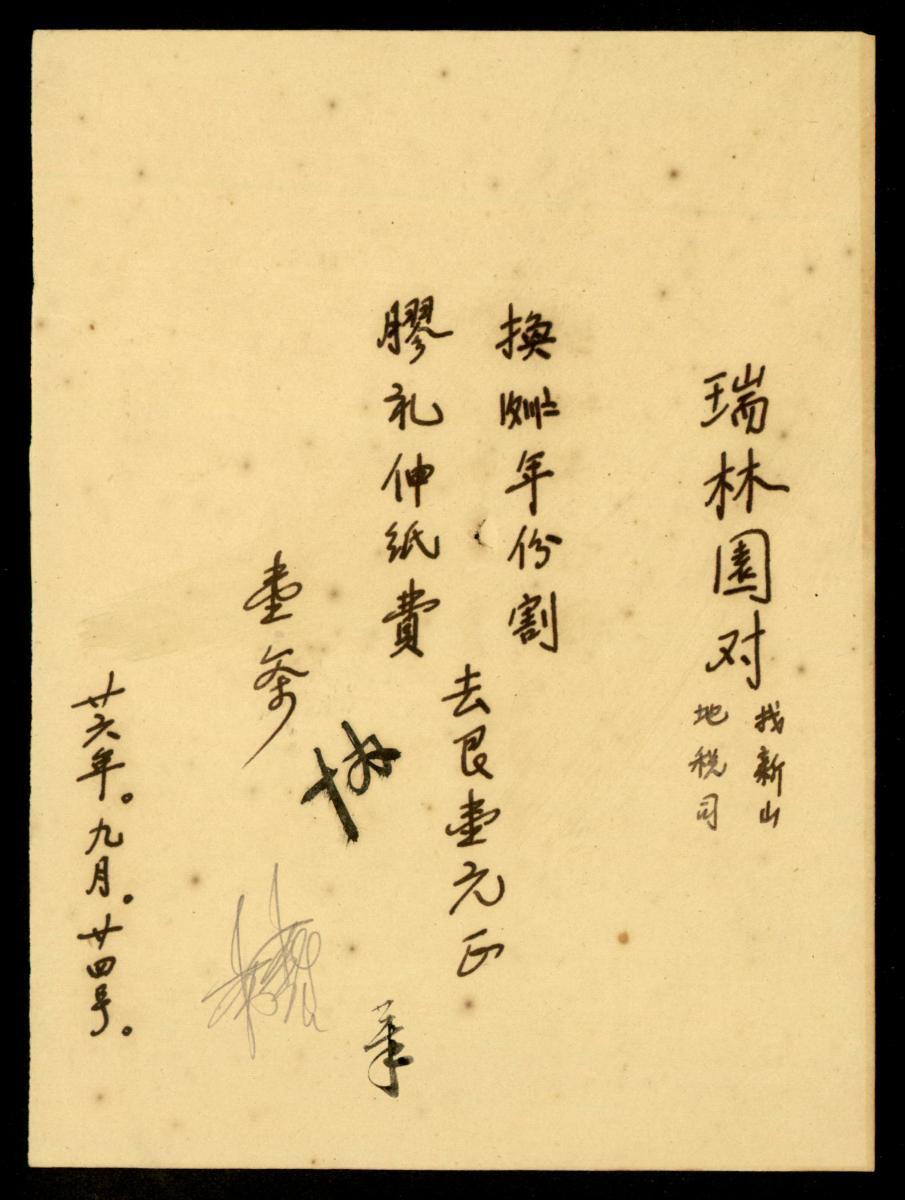 瑞林園对
找新山
地税司
換年份割
膠礼伸紙費
去艮壹元正
壹条
協
廿六年。九月。廿四号。